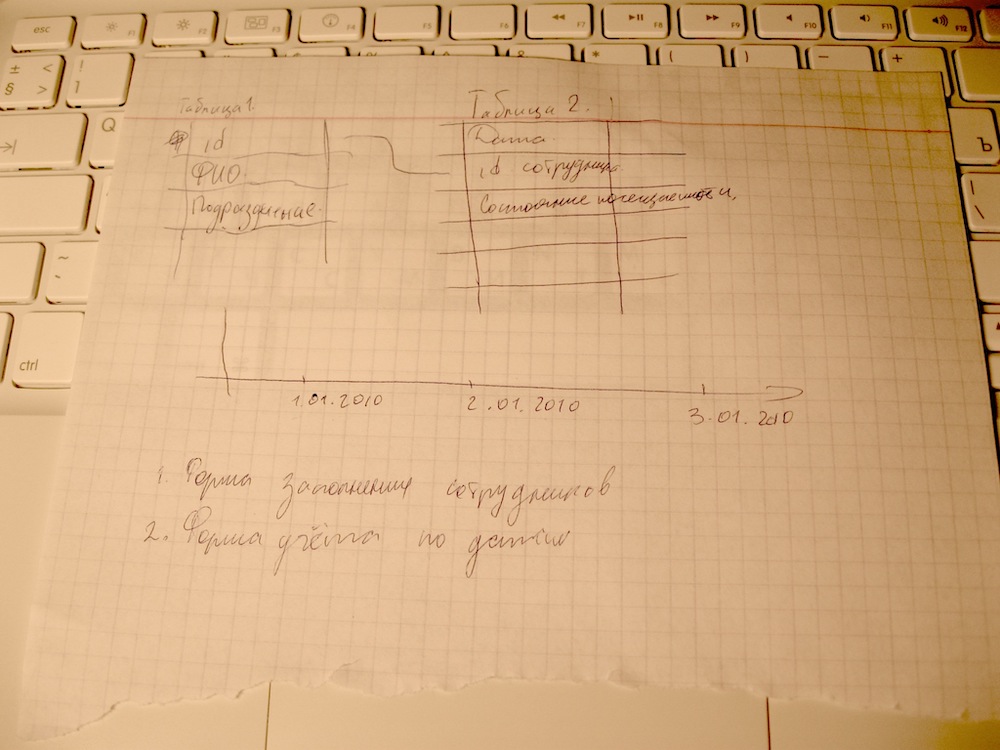 esc F1 F2 F3 F4 F5 F6 F7 F8 F9 F10 F11 F12
± § < > ! 1 & * ( ) – +
Q
Ъ
~
| \
ctrl
Таблица 1.
id
ФИО.
Подразделение.
Таблица 2.
Дата.
id сотрудника
Состояние посещаемости,
1.01.2010 2.01.2010 3.01.2010
1. Форма заполнения сотрудников
2. Форма учёта по датам